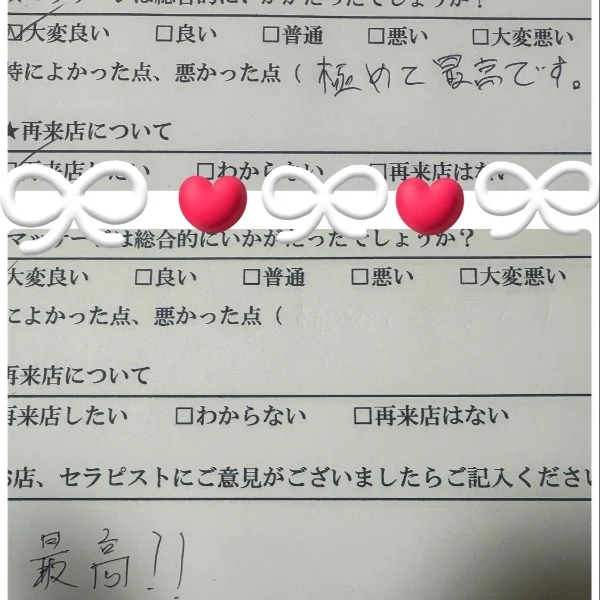 は総合的にいかがだったでしょうか？
☑大変良い □良い □普通 □悪い □大変悪い
特によかった点、悪かった点（極めて最高です。
★再来店について
再来店したい □わからない □再来店はない
マッサージは総合的にいかがだったでしょうか？
大変良い □良い □普通 □悪い □大変悪い
によかった点、悪かった点（
再来店について
再来店したい □わからない □再来店はない
お店、セラピストにご意見がございましたらご記入ください
最高!!